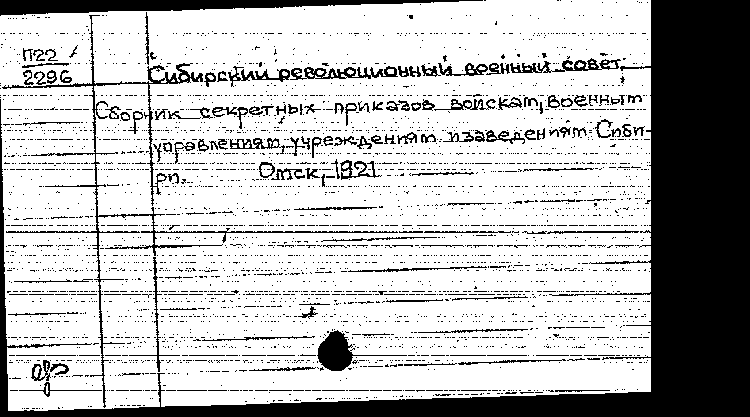 П22
2296
Сибирский революционный военный совет.
Сборник секретных приказов войскам, военным
управлениям, учреждениям и заведениям Сиби-
ри. Омск, 1921